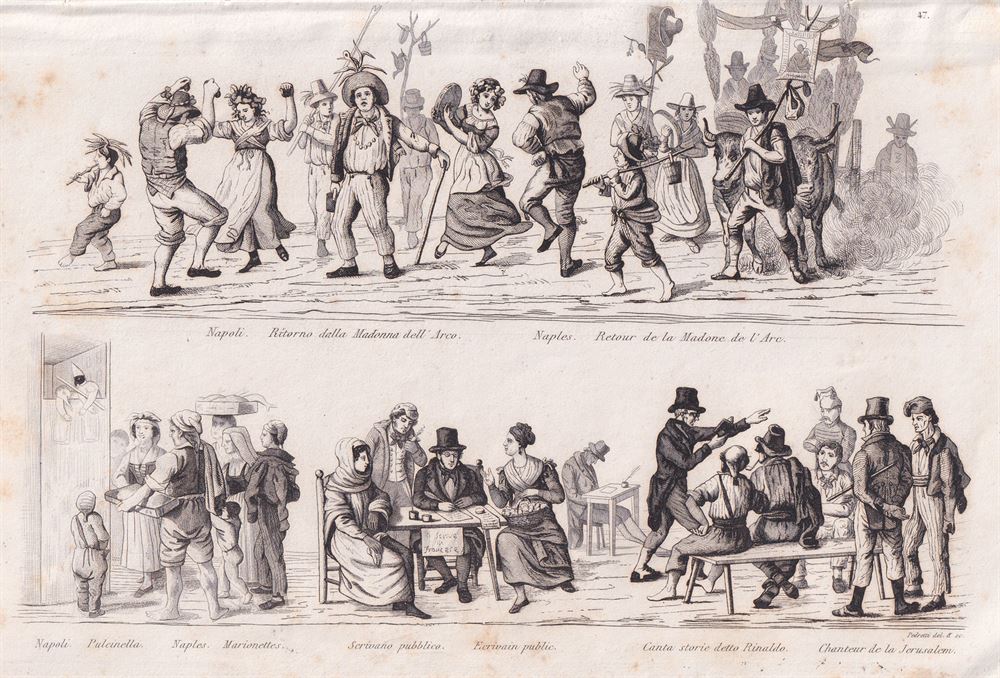 47.
Napoli. Ritorno della Madonna dell' Arco. Naples. Retour de la Madone de l' Arc.
Scrive
Francese
Pedretti del. & sc.
Napoli. Pulcinella. Naples. Marionettes. Scrivano pubblico. Ecrivain public. Canta storie detto Rinaldo. Chanteur de la Jerusalem.